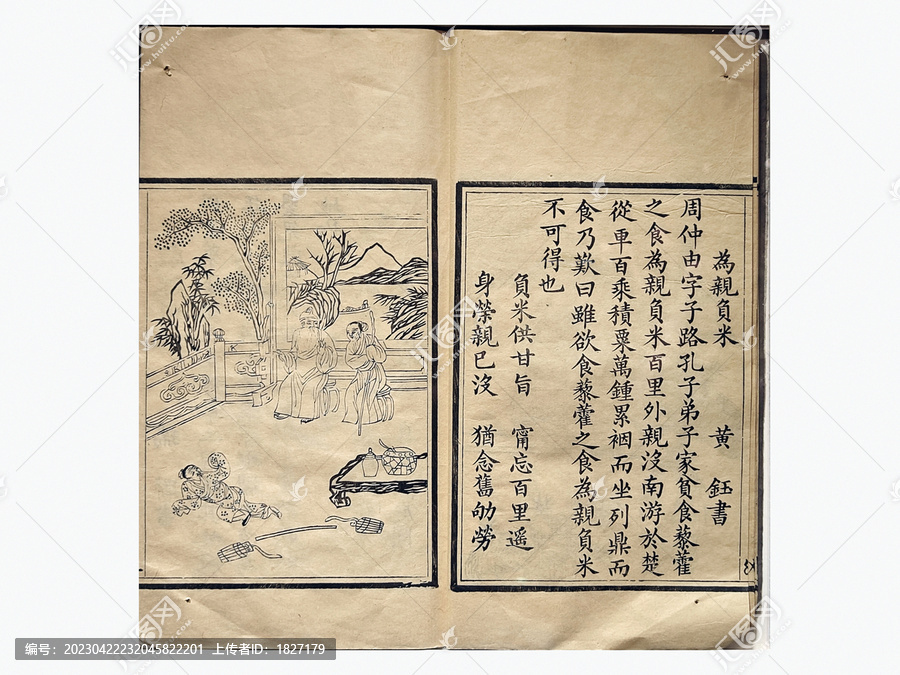 為親負米 黃鈺書
周仲由字子路孔子弟子家貧食藜藿
之食為親負米百里外親沒南游於楚
從車百乘積粟萬鍾累裀而坐列鼎而
食乃歎曰雖欲食藜藿之食為親負米
不可得也
負米供甘旨 甯忘百里遥
身榮親已沒 猶念舊劬勞
汇图网
www.huitu.com
编号：20230422232045822201 上传者ID：1827179